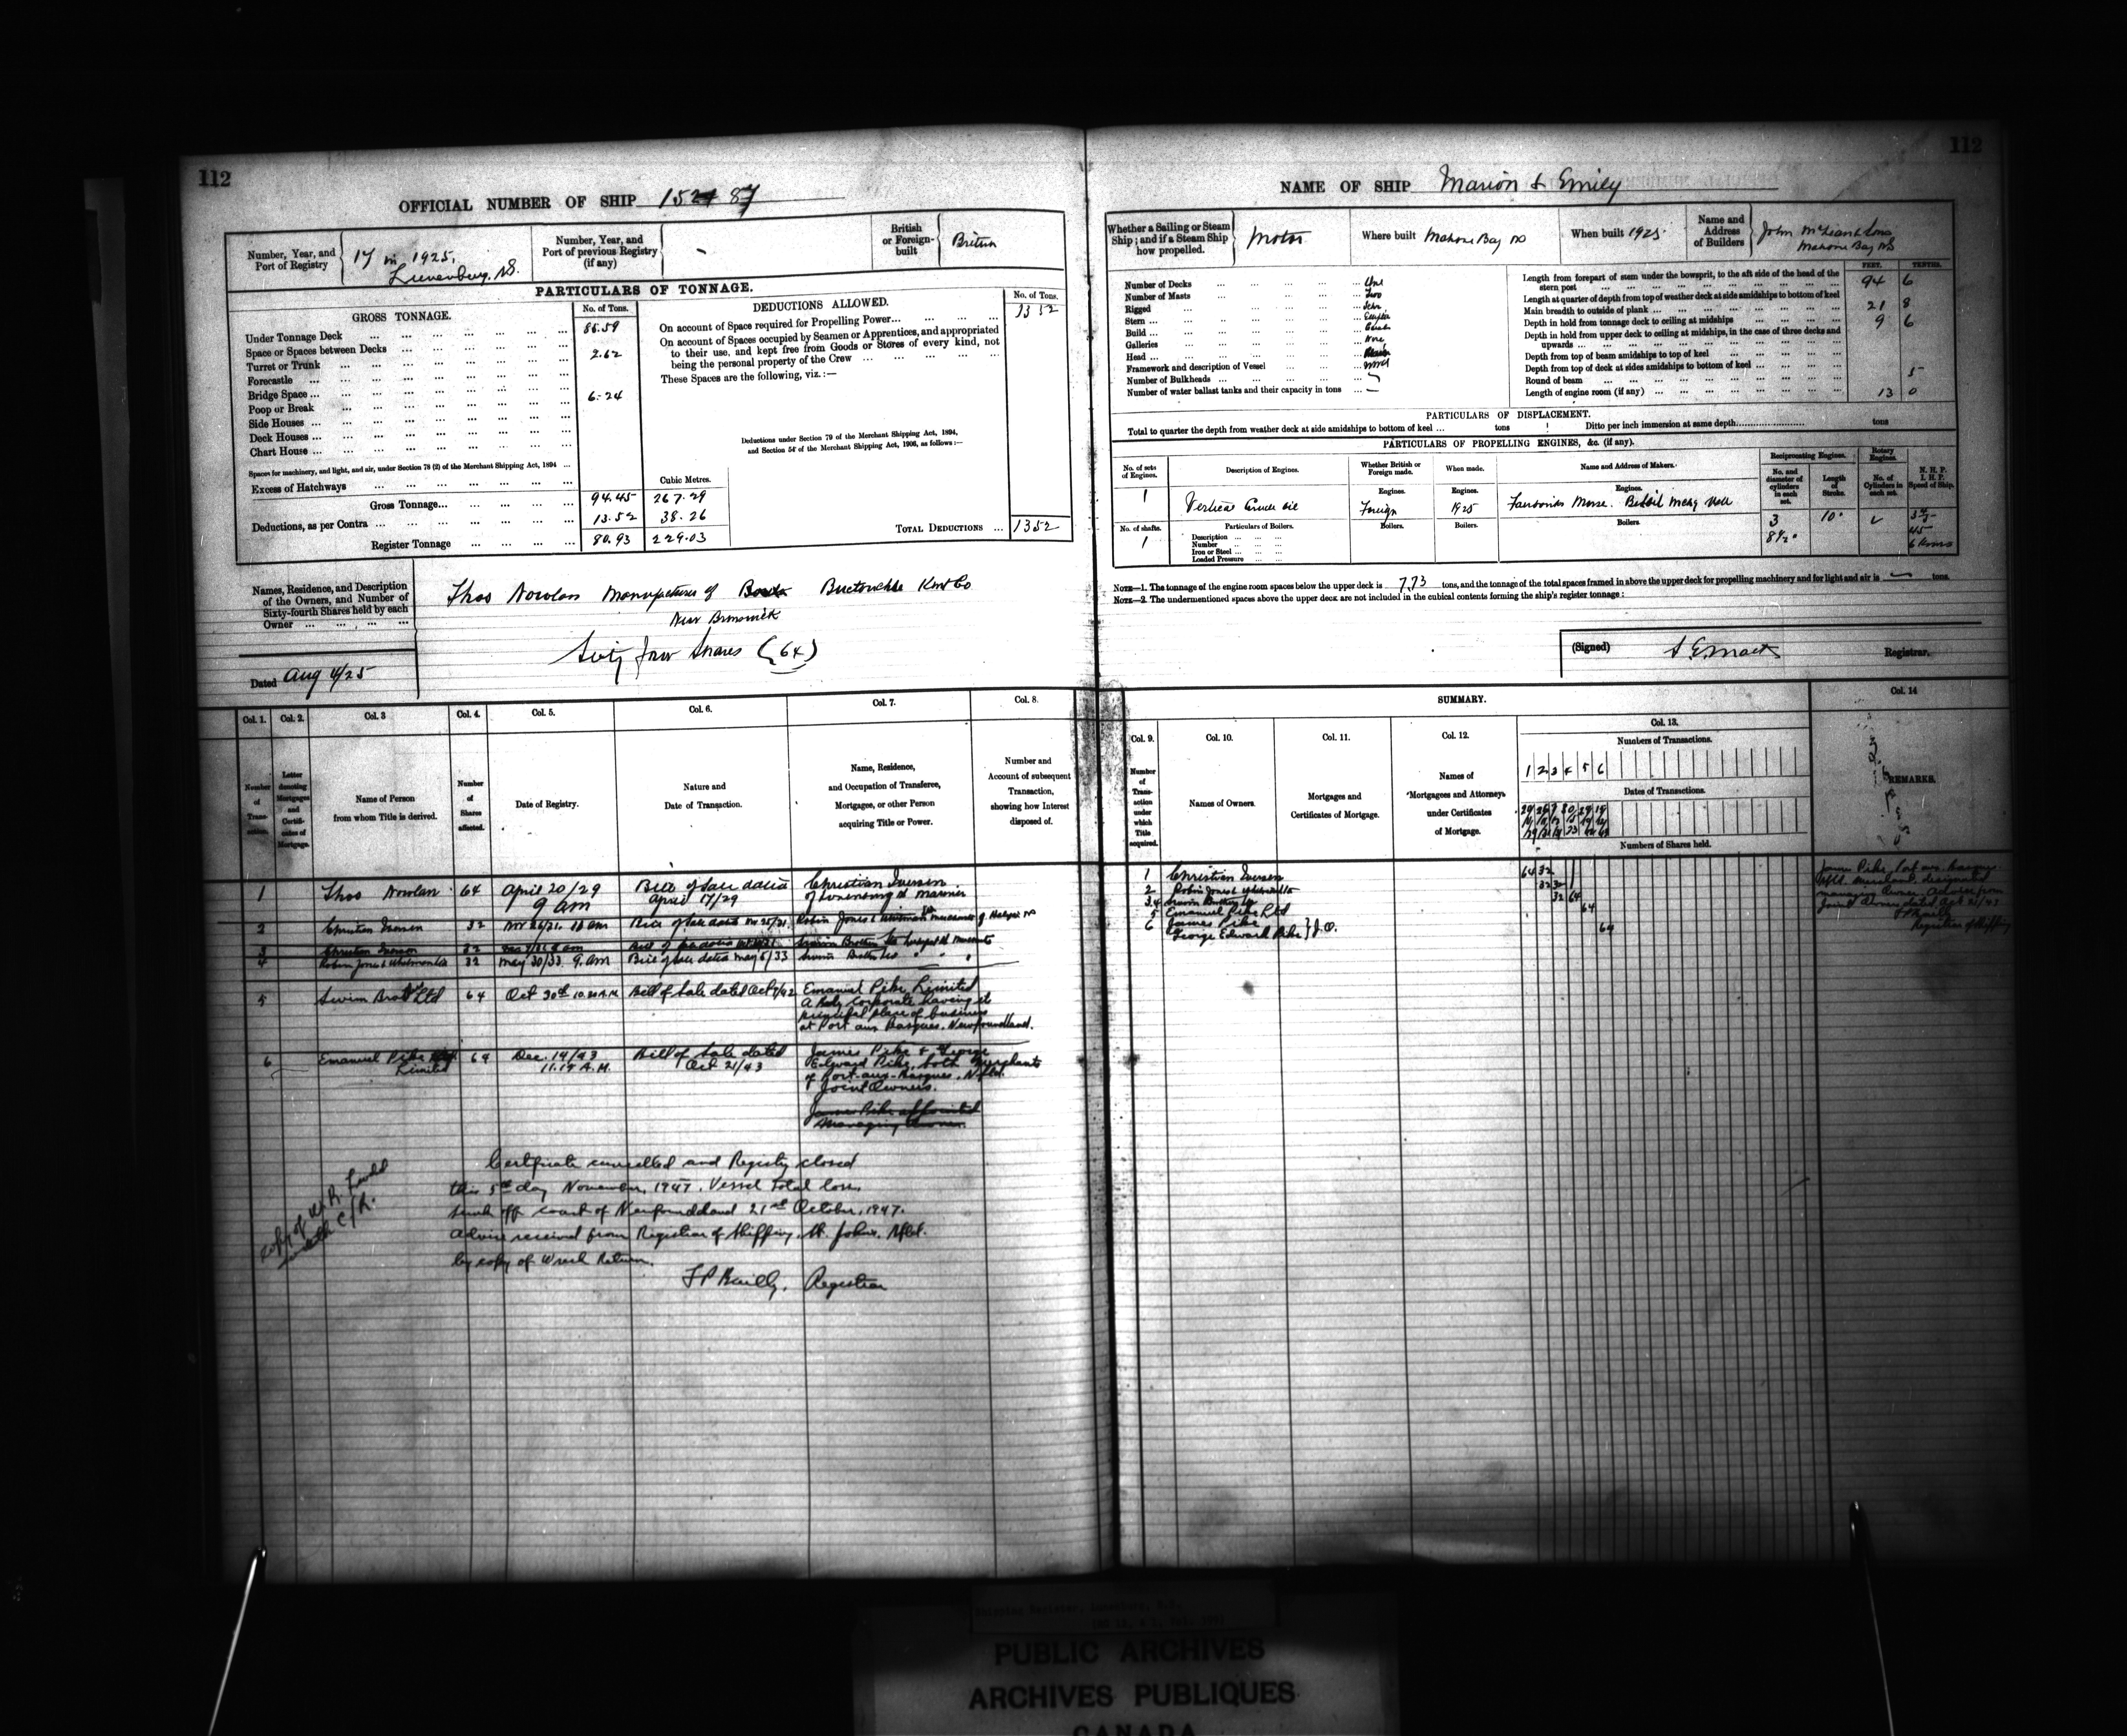 112
OFFICIAL NUMBER OF SHIP
Number, Year, and Port of Registry
17 in 1925.
Lunenburg, N.S.
Number, Year, and Port of previous Registry (if any)
British or Foreign-built
British
PARTICULARS OF TONNAGE.
GROSS TONNAGE.
No. of Tons.
Under Tonnage Deck ... 85.59
Space or Spaces between Decks ...
Turret or Trunk ... 2.62
Forecastle ...
Bridge Space ...
Poop or Break ... 6.24
Side Houses ...
Deck Houses ...
Chart House ...
Spaces for machinery, and light, and air, under Section 78 (2) of the Merchant Shipping Act, 1894 ...
Excess of Hatchways ...
Cubic Metres.
Gross Tonnage... 94.45 267.29
Deductions, as per Contra ... 13.52 38.26
Register Tonnage ... 80.93 229.03
DEDUCTIONS ALLOWED.
No. of Tons.
On account of Space required for Propelling Power... 13 52
On account of Spaces occupied by Seamen or Apprentices, and appropriated
to their use, and kept free from Goods or Stores of every kind, not
being the personal property of the Crew ...
These Spaces are the following, viz.:—
Deductions under Section 79 of the Merchant Shipping Act, 1894,
and Section 54 of the Merchant Shipping Act, 1906, as follows:—
TOTAL DEDUCTIONS ... 1352
Names, Residence, and Description
of the Owners, and Number of
Sixty-fourth Shares held by each
Owner ...
Thos Nowlan Manufacturer of Buctouche Kent Co
New Brunswick
Sixty four Shares (64)
Dated Aug 4/25
Col. 1. Col. 2. Col. 3 Col. 4. Col. 5. Col. 6. Col. 7. Col. 8.
Number of Transaction.
Letter denoting Mortgages and Certificates of Mortgage.
Name of Person from whom Title is derived.
Number of Shares affected.
Date of Registry.
Nature and Date of Transaction.
Name, Residence, and Occupation of Transferee, Mortgagee, or other Person acquiring Title or Power.
Number and Account of subsequent Transaction, showing how Interest disposed of.
1 Thos Nowlan 64 April 20/29 9 am Bill of Sale dated April 17/29 Christian Iversen of Lunenburg NS Mariner
2 Christian Iversen 32 Nov 26/31. 10 am Bill of Sale dated Nov 25/31
3 Christian Iversen 32
4 Robin Jones & Whitman Ltd 32 May 30/33 9. am Bill of Sale dated May 5/33
5 Swim Bros Ltd 64 Oct 30th 10.20 A.M. Bill of Sale dated Oct 9/42 Emanuel Pike Limited
A Body Corporate having its
principal place of business
at Port aux Basques. Newfoundland.
6 Emanuel Pike Limited 64 Dec. 14/43 11.15 A.M. Bill of Sale dated Oct 21/43 James Pike & George
Edward Pike, both Merchants
of Port-aux-Basques. Nfld.
Joint Owners.
James Pike appointed
Managing Owner.
Certificate cancelled and Registry closed
this 5th day November, 1947. Vessel total loss,
sunk off coast of Newfoundland 21st October, 1947.
Advice received from Registrar of Shipping, St. John's, Nfld.
by copy of Wreck Return.
Registrar
copy of W. R. filed
with C/R.
112
NAME OF SHIP Marion & Emily
Whether a Sailing or Steam Ship; and if a Steam Ship how propelled.
Motor
Where built Mahone Bay NS
When built 1925.
Name and Address of Builders
John McLean & Sons
Mahone Bay NS
Number of Decks ... One
Number of Masts ... Two
Rigged ... Schr
Stern ...
Build ...
Galleries ... None
Head ...
Framework and description of Vessel ... Wood
Number of Bulkheads ...
Number of water ballast tanks and their capacity in tons ...
FEET. TENTHS.
Length from forepart of stem under the bowsprit, to the aft side of the head of the stern post ... 94 6
Length at quarter of depth from top of weather deck at side amidships to bottom of keel
Main breadth to outside of plank ... 21 8
Depth in hold from tonnage deck to ceiling at midships ... 9 6
Depth in hold from upper deck to ceiling at midships, in the case of three decks and upwards ...
Depth from top of beam amidships to top of keel ...
Depth from top of deck at sides amidships to bottom of keel ...
Round of beam ... 5
Length of engine room (if any) ... 13 0
PARTICULARS OF DISPLACEMENT.
Total to quarter the depth from weather deck at side amidships to bottom of keel ... tons Ditto per inch immersion at same depth... tons
PARTICULARS OF PROPELLING ENGINES, &c. (if any).
No. of sets of Engines. Description of Engines. Whether British or Foreign made. When made. Name and Address of Makers. Reciprocating Engines. Rotary Engines. N. H. P. I. H. P. Speed of Ship.
No. and diameter of cylinders in each set. Length of Stroke. No. of Cylinders in each set.
Engines. Engines. Engines.
1 Vertical Crude oil Foreign 1925 Fairbanks Morse.
3 8½" 10"
45
6 Knots
No. of shafts. Particulars of Boilers. Boilers. Boilers. Boilers.
1
Description ...
Number ...
Iron or Steel ...
Loaded Pressure ...
NOTE—1. The tonnage of the engine room spaces below the upper deck is 7.73 tons, and the tonnage of the total spaces framed in above the upper deck for propelling machinery and for light and air is — tons.
NOTE—2. The undermentioned spaces above the upper deck are not included in the cubical contents forming the ship's register tonnage:
(Signed) Registrar.
SUMMARY.
Col. 9. Col. 10. Col. 11. Col. 12. Col. 13. Col. 14
Number of Transaction under which Title acquired.
Names of Owners.
Mortgages and Certificates of Mortgage.
Names of Mortgagees and Attorneys under Certificates of Mortgage.
Numbers of Transactions.
1 2 3 4 5 6
Dates of Transactions.
Numbers of Shares held.
REMARKS.
1 Christian Iversen 64 32
2 Robin Jones & Whitman Ltd 32 32
3.4 Swim Brothers Ltd 32 64
5 Emanuel Pike Ltd 64
6 James Pike
George Edward Pike } J.O. 64
James Pike, Port aux Basques
Nfld. Merchant, designated
managing Owner. Advice from
Joint Owners dated Oct 21/43
Registrar of Shipping
PUBLIC ARCHIVES
ARCHIVES PUBLIQUES
CANADA